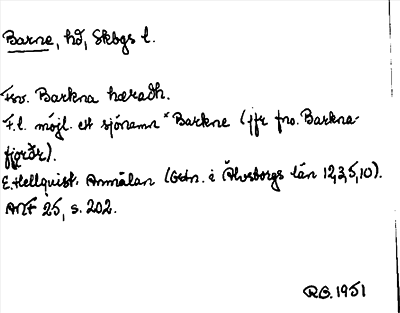 Barne, hd, Skbgs l.
Fsv. Barkna hæradh.
F.l. möjl. ett sjönamn *Barkne (jfr fno. Barkna-
fjǫrðr).
E. Hellquist. Anmälan (Ortn. i Älvsborgs län 12,3,5,10).
ANF 25, s. 202.
R.O. 1951